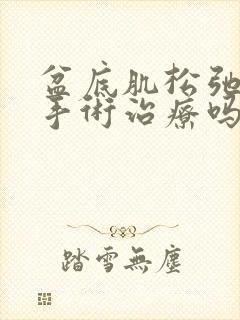 盆底肌松弛
手術治療吗
踏雪無塵